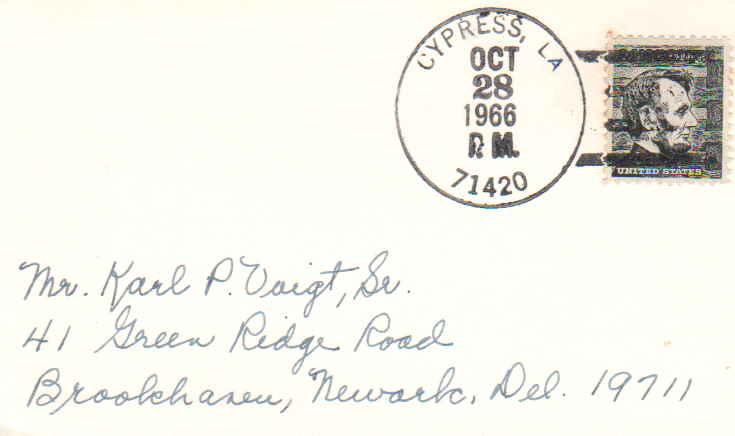 CYPRESS, LA
OCT
28
1966
P.M.
71420
UNITED STATES
Mr. Karl P. Voigt, Sr.
41 Green Ridge Road
Brookhaven, Newark, Del. 19711